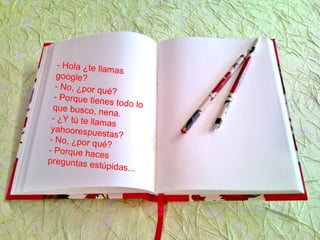 - Hola ¿te llamas
google?
- No, ¿por qué?
- Porque tienes todo lo
que busco, nena.
- ¿Y tú te llamas
yahoorespuestas?
- No, ¿por qué?
- Porque haces
preguntas estúpidas...